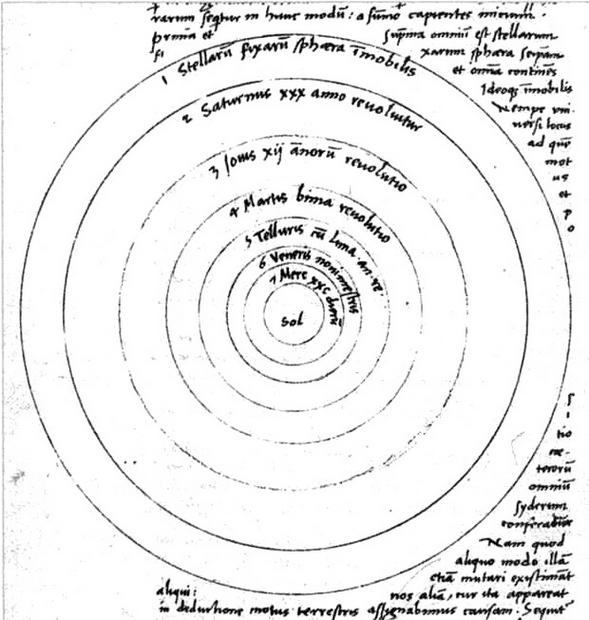 rarum sequtur in hunc modū: a sumo capientes inicium.
prima et
Suprema omniū est stellarum
fi
xarum sphæra seipsam
et omnia continēs
Ideoqȝ īmobilis
Nempe vni-
versi locus
ad quē
mot
us
et
p
o
1 Stellarū fixarū sphæra īmobilis
2 Saturnus xxx anno reuoluitur
3 Jouis xij annorū reuolutio
4 Martis bima reuolutio
5 Telluris cū luna an. re.
6 Veneris nonimestris
7 Merc xxc dierū
Sol
S
i
tio
cæ-
terorū
omniū
syderum
conferatur
Nam quod
aliquo modo illā
etiā mutari existimāt
aliqui:
nos aliā, cur ita appareat
in deductione motus terrestris assignabimus causam. Sequit